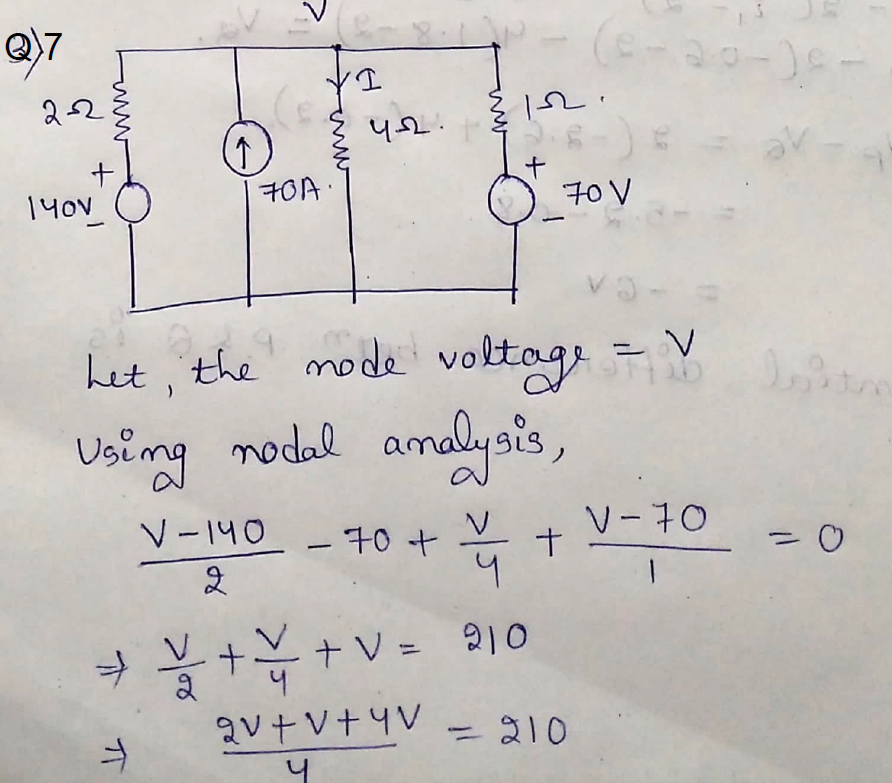 V
Q)7
I
2Ω
4Ω.
1Ω.
+
140V
-
70A.
+
70V
-
Let, the node voltage = V
Using nodal analysis,
V-140/2 - 70 + V/4 + V-70/1 = 0
⇒ V/2 + V/4 + V = 210
⇒ 2V+V+4V/4 = 210